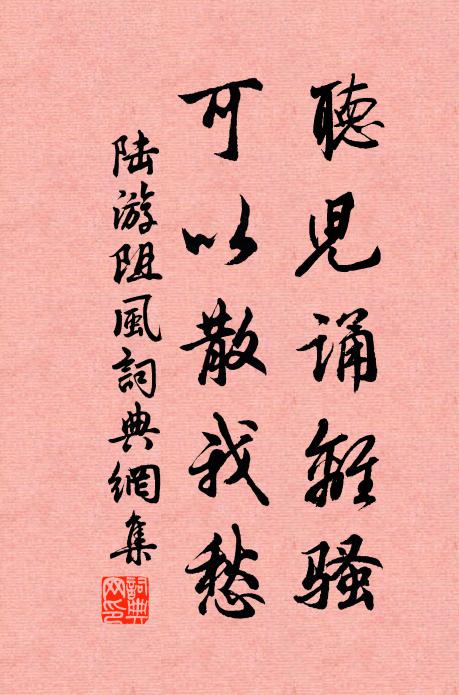 聽兒誦離騷
可以散我愁
陆游阻風詞典網集
詞典網印